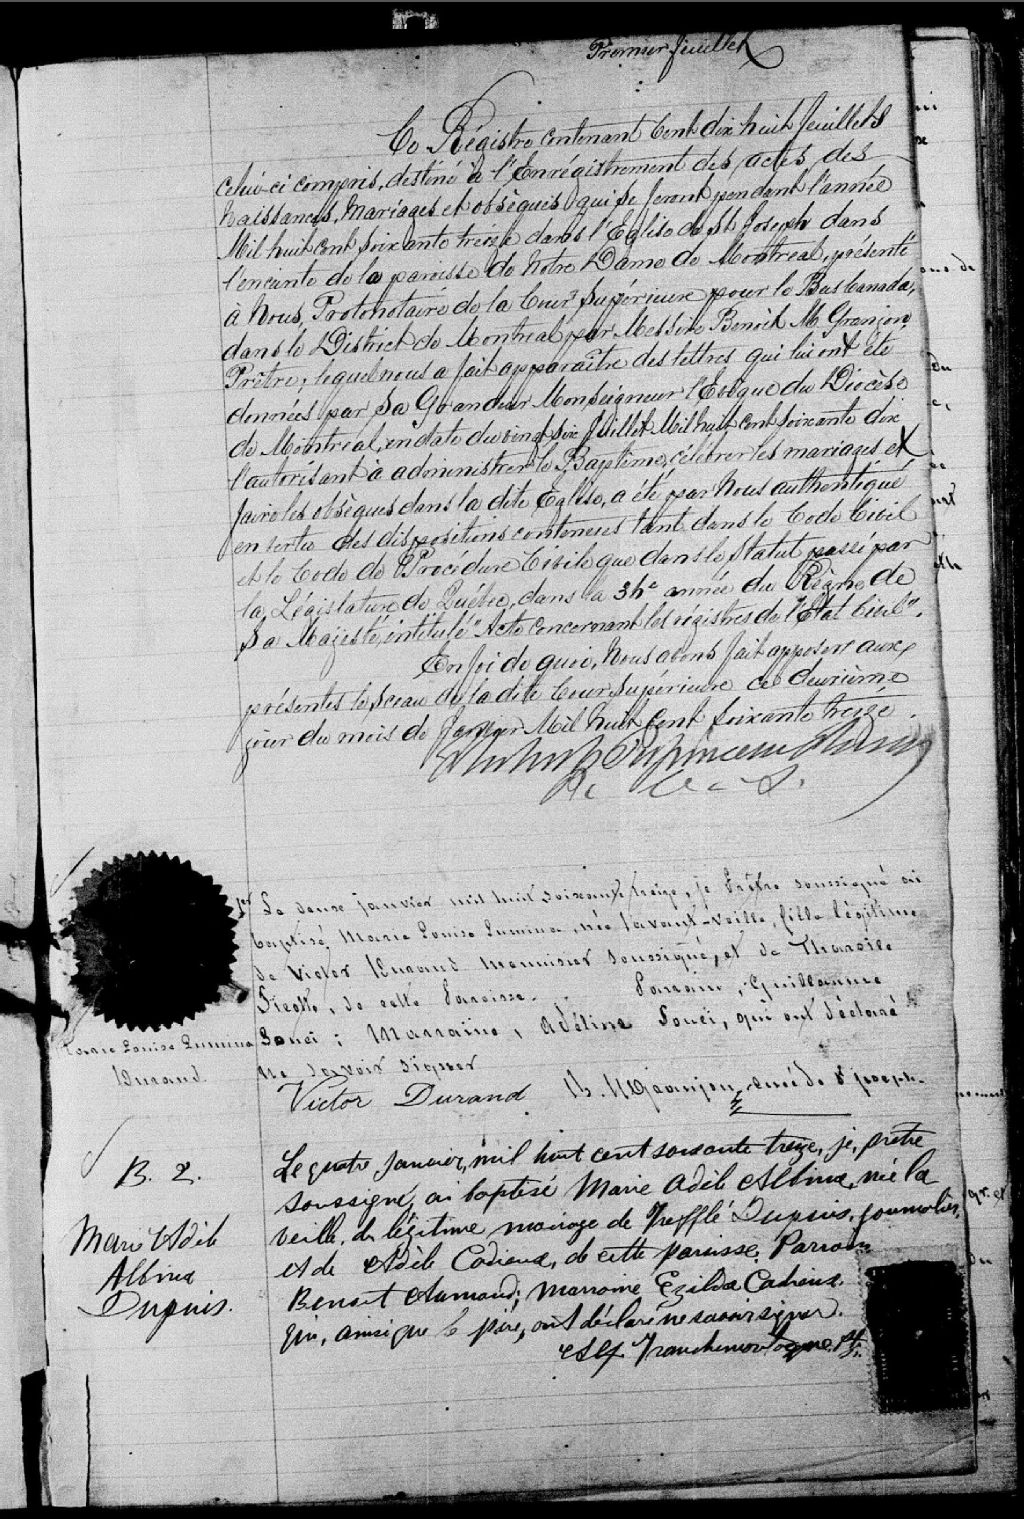 Premier feuillet
Ce Régistre contenant Cent dix huit feuillets
celui-ci compris, destiné à l'Enrégistrement des actes des
Naissances, Mariages et obsèques qui se feront pendant l'année
Mil huit cent soixante treize dans l'Eglise de St Joseph dans
l'enceinte de la paroisse de Notre Dame de Montreal, présenté
à Nous, Protonotaire de la Cour Supérieure pour le Bas Canada,
dans le District de Montreal par Messire Benoit M. Granjon,
Prêtre, lequel nous a fait apparaître des lettres qui lui ont été
données par Sa Grandeur Monseigneur l'Evêque du Diocèse
de Montréal, en date du vingt six Juillet Mil huit cent soixante dix
l'autorisant à administrer le Baptême, célébrer les mariages et
faire les obsèques dans la dite Eglise, a été par Nous authentiqué
en vertu des dispositions contenues tant dans le Code Civil
et le Code de Procédure Civile que dans le Statut passé par
la Législature de Québec, dans la 36e année du Règne de
Sa Majesté, intitulé "Acte concernant les régistres de l'Etat Civil".
En foi de quoi, Nous avons fait apposer aux
présentes le sceau de la dite Cour Supérieure ce deuxième
jour du mois de Janvier Mil huit Cent Soixante treize.
P. C. S.
Le janvier mil huit soixante treize, je Prêtre soussigné ai
baptisé Marie Louise Lumina, née l'avant-veille, fille légitime
de Victor Durand Menuisier soussigné, et de Tharsile
de cette Paroisse. Parrain, Guillaume
; Marraine, Adéline, qui ont déclaré
ne savoir signer
Marie Louise Lumina
Durand
Victor Durand B. M Granjon, curé de St Joseph
B. 2.
Marie Adèle
Albina
Dupuis.
Le quatre Janvier, mil huit cent soixante treize, je, prêtre
soussigné, ai baptisé Marie Adèle Albina, née la
veille, du légitime mariage de Trefflé Dupuis, journalier,
et de Adèle Cadieux, de cette paroisse. Parrain
Benoit; Marraine Ezilda Cadieux.
qui, ainsi que le père, ont déclaré ne savoir signer.
Alf. Franchemontagne Ptr.